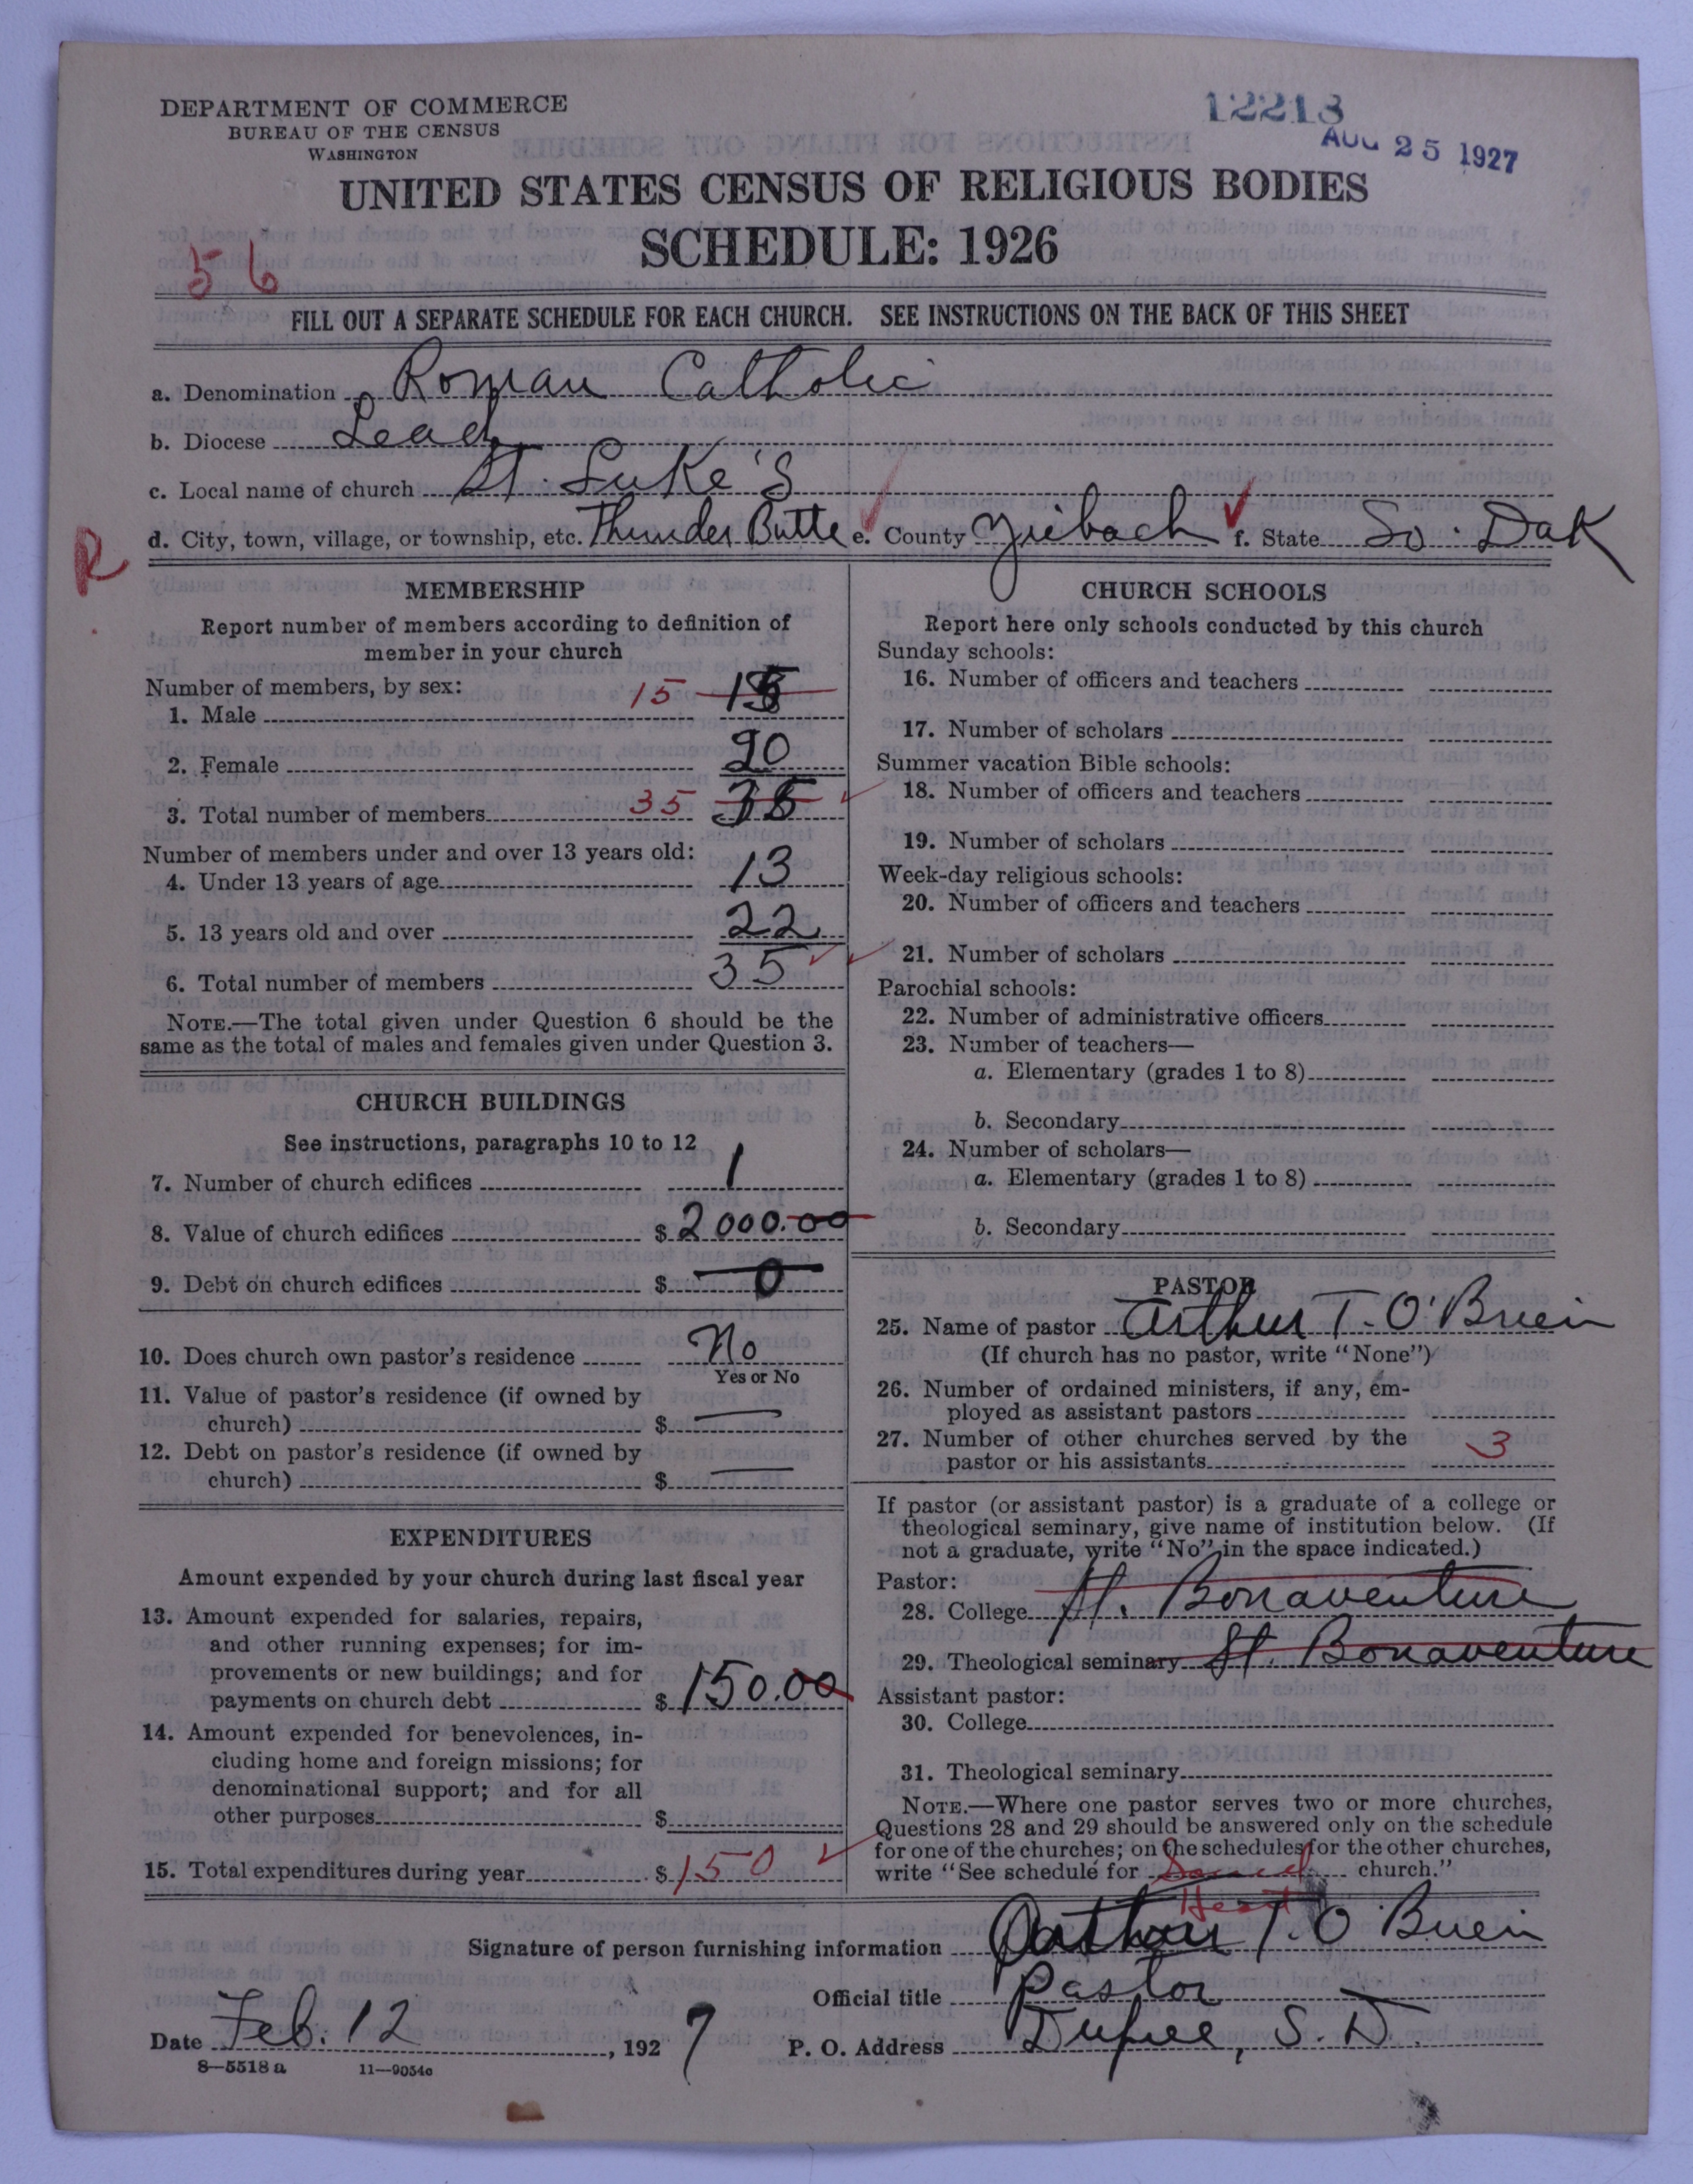 DEPARTMENT OF COMMERCE
BUREAU OF THE CENSUS
WASHINGTON
12213
AUG 25 1927
UNITED STATES CENSUS OF RELIGIOUS BODIES
SCHEDULE: 1926
56
FILL OUT A SEPARATE SCHEDULE FOR EACH CHURCH. SEE INSTRUCTIONS ON THE BACK OF THIS SHEET
a. Denomination Roman Catholic
b. Diocese Lead
c. Local name of church St. Luke's
d. City, town, village, or township, etc. Thunder Butte e. County Ziebach f. State So. Dak
R
MEMBERSHIP
Report number of members according to definition of
member in your church
Number of members, by sex:
1. Male 15 15
2. Female 20
3. Total number of members 35 35
Number of members under and over 13 years old:
4. Under 13 years of age 13
5. 13 years old and over 22
6. Total number of members 35
NOTE.—The total given under Question 6 should be the
same as the total of males and females given under Question 3.
CHURCH BUILDINGS
See instructions, paragraphs 10 to 12
7. Number of church edifices 1
8. Value of church edifices $ 2000.00
9. Debt on church edifices $ 0
10. Does church own pastor's residence No
Yes or No
11. Value of pastor's residence (if owned by
church) $ —
12. Debt on pastor's residence (if owned by
church) $ —
EXPENDITURES
Amount expended by your church during last fiscal year
13. Amount expended for salaries, repairs,
and other running expenses; for im-
provements or new buildings; and for
payments on church debt $ 150.00
14. Amount expended for benevolences, in-
cluding home and foreign missions; for
denominational support; and for all
other purposes $
15. Total expenditures during year $ 150
CHURCH SCHOOLS
Report here only schools conducted by this church
Sunday schools:
16. Number of officers and teachers
17. Number of scholars
Summer vacation Bible schools:
18. Number of officers and teachers
19. Number of scholars
Week-day religious schools:
20. Number of officers and teachers
21. Number of scholars
Parochial schools:
22. Number of administrative officers
23. Number of teachers—
a. Elementary (grades 1 to 8)
b. Secondary
24. Number of scholars—
a. Elementary (grades 1 to 8)
b. Secondary
PASTOR
25. Name of pastor Arthur T. O'Brien
(If church has no pastor, write "None")
26. Number of ordained ministers, if any, em-
ployed as assistant pastors
27. Number of other churches served by the
pastor or his assistants 3
If pastor (or assistant pastor) is a graduate of a college or
theological seminary, give name of institution below. (If
not a graduate, write "No" in the space indicated.)
Pastor:
28. College St. Bonaventure
29. Theological seminary St. Bonaventure
Assistant pastor:
30. College
31. Theological seminary
NOTE.—Where one pastor serves two or more churches,
Questions 28 and 29 should be answered only on the schedule
for one of the churches; on the schedules for the other churches,
write "See schedule for Sacred church."
Heart
Signature of person furnishing information Arthur T. O'Brien
Official title Pastor
Date Feb. 12, 1927 P. O. Address Dupree, S. D.
8—5518 a 11—9054c